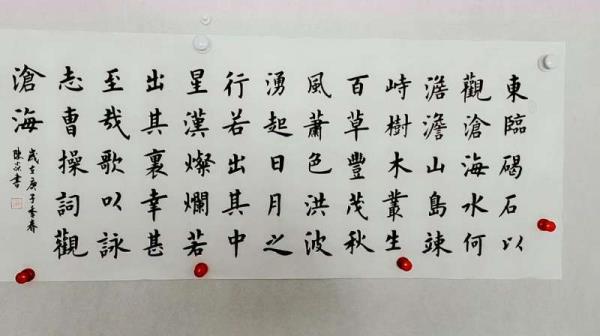 東臨碣石以
觀滄海水何
澹澹山島竦
峙樹木叢生
百草豐茂秋
風蕭色洪波
湧起日月之
行若出其中
星漢燦爛若
出其裏幸甚
至哉歌以詠
志曹操詞觀
滄海
歲在庚子季春
陳書